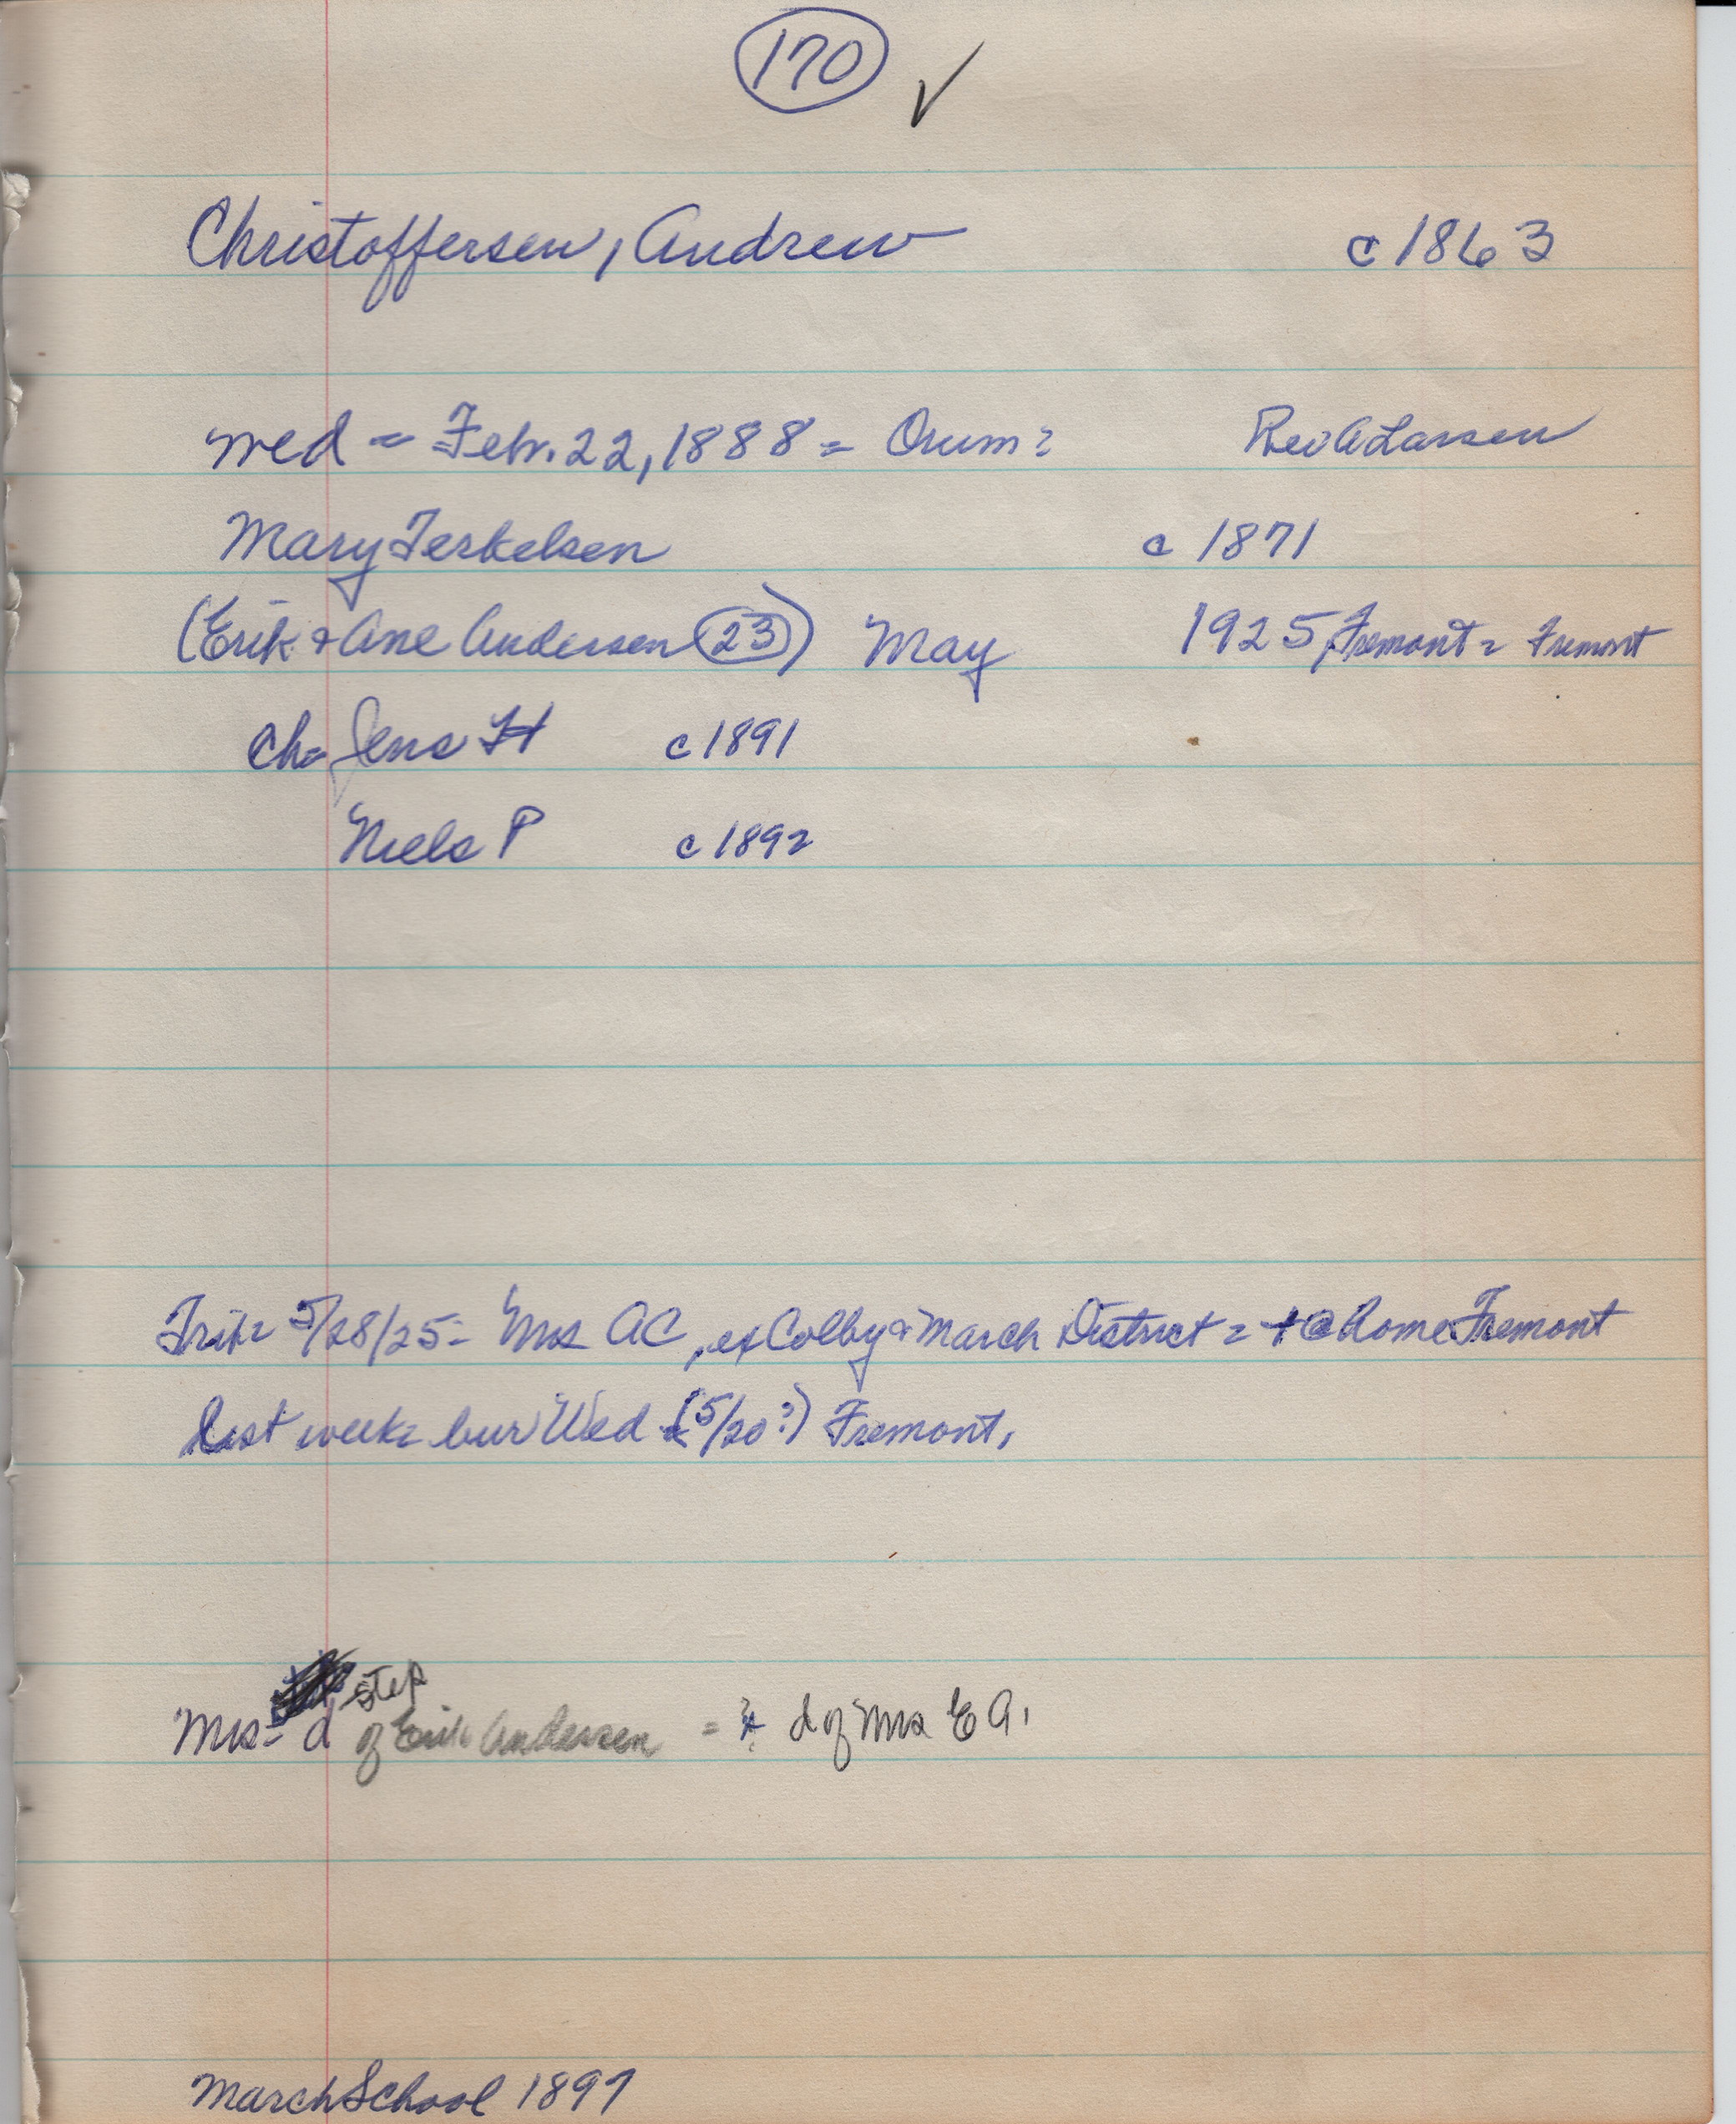 170 ✓
Christoffersen, Andrew c 1863
wed = Feb. 22, 1888 = Orum? Rev A Larsen
Mary Terkelsen c 1871
(Erik & Ane Andersen 23) May 1925, Fremont = Fremont
Ch = Jens H c 1891
Niels P c 1892
Trib = 5/28/25 = Mrs AC, ex Colby & March District = + @ home Fremont
last week = bur Wed (5/20?) Fremont.
step
Mrs = d of Erik Andersen = ? d of Mrs E A.
March School 1897